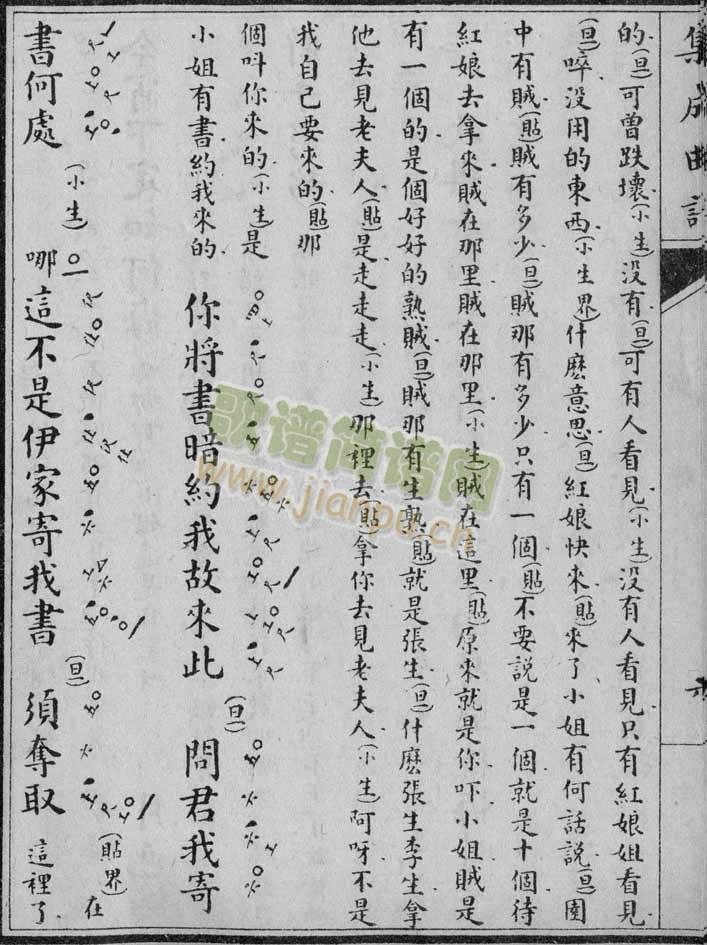 集成曲譜
的(旦)可曾跌壞(小生)沒有(旦)可有人看見(小生)沒有人看見只有紅娘姐看見
(旦)啐沒用的東西(小生界)什麽意思(旦)紅娘快來(貼)來了小姐有何話說(旦)園
中有賊(貼)賊有多少(旦)賊那有多少只有一個(貼)不要說是一個就是十個待
紅娘去拿來賊在那里賊在那里(小生)賊在這里(貼)原來就是你吓小姐賊是
有一個的是個好好的熟賊(旦)賊那有生熟(貼)就是張生(旦)什麽張生李生拿
他去見老夫人(貼)是走走走(小生)那裡去(貼)拿你去見老夫人(小生)阿呀不是
我自己要來的(貼)那
個呌你來的(小生)是
小姐有書約我來的
你將書暗約我故來此(旦)問君我寄
書何處(小生)哪這不是伊家寄我書(旦)須奪取(貼界)在
這裡了
歌谱简谱网
www.jianpu.cn